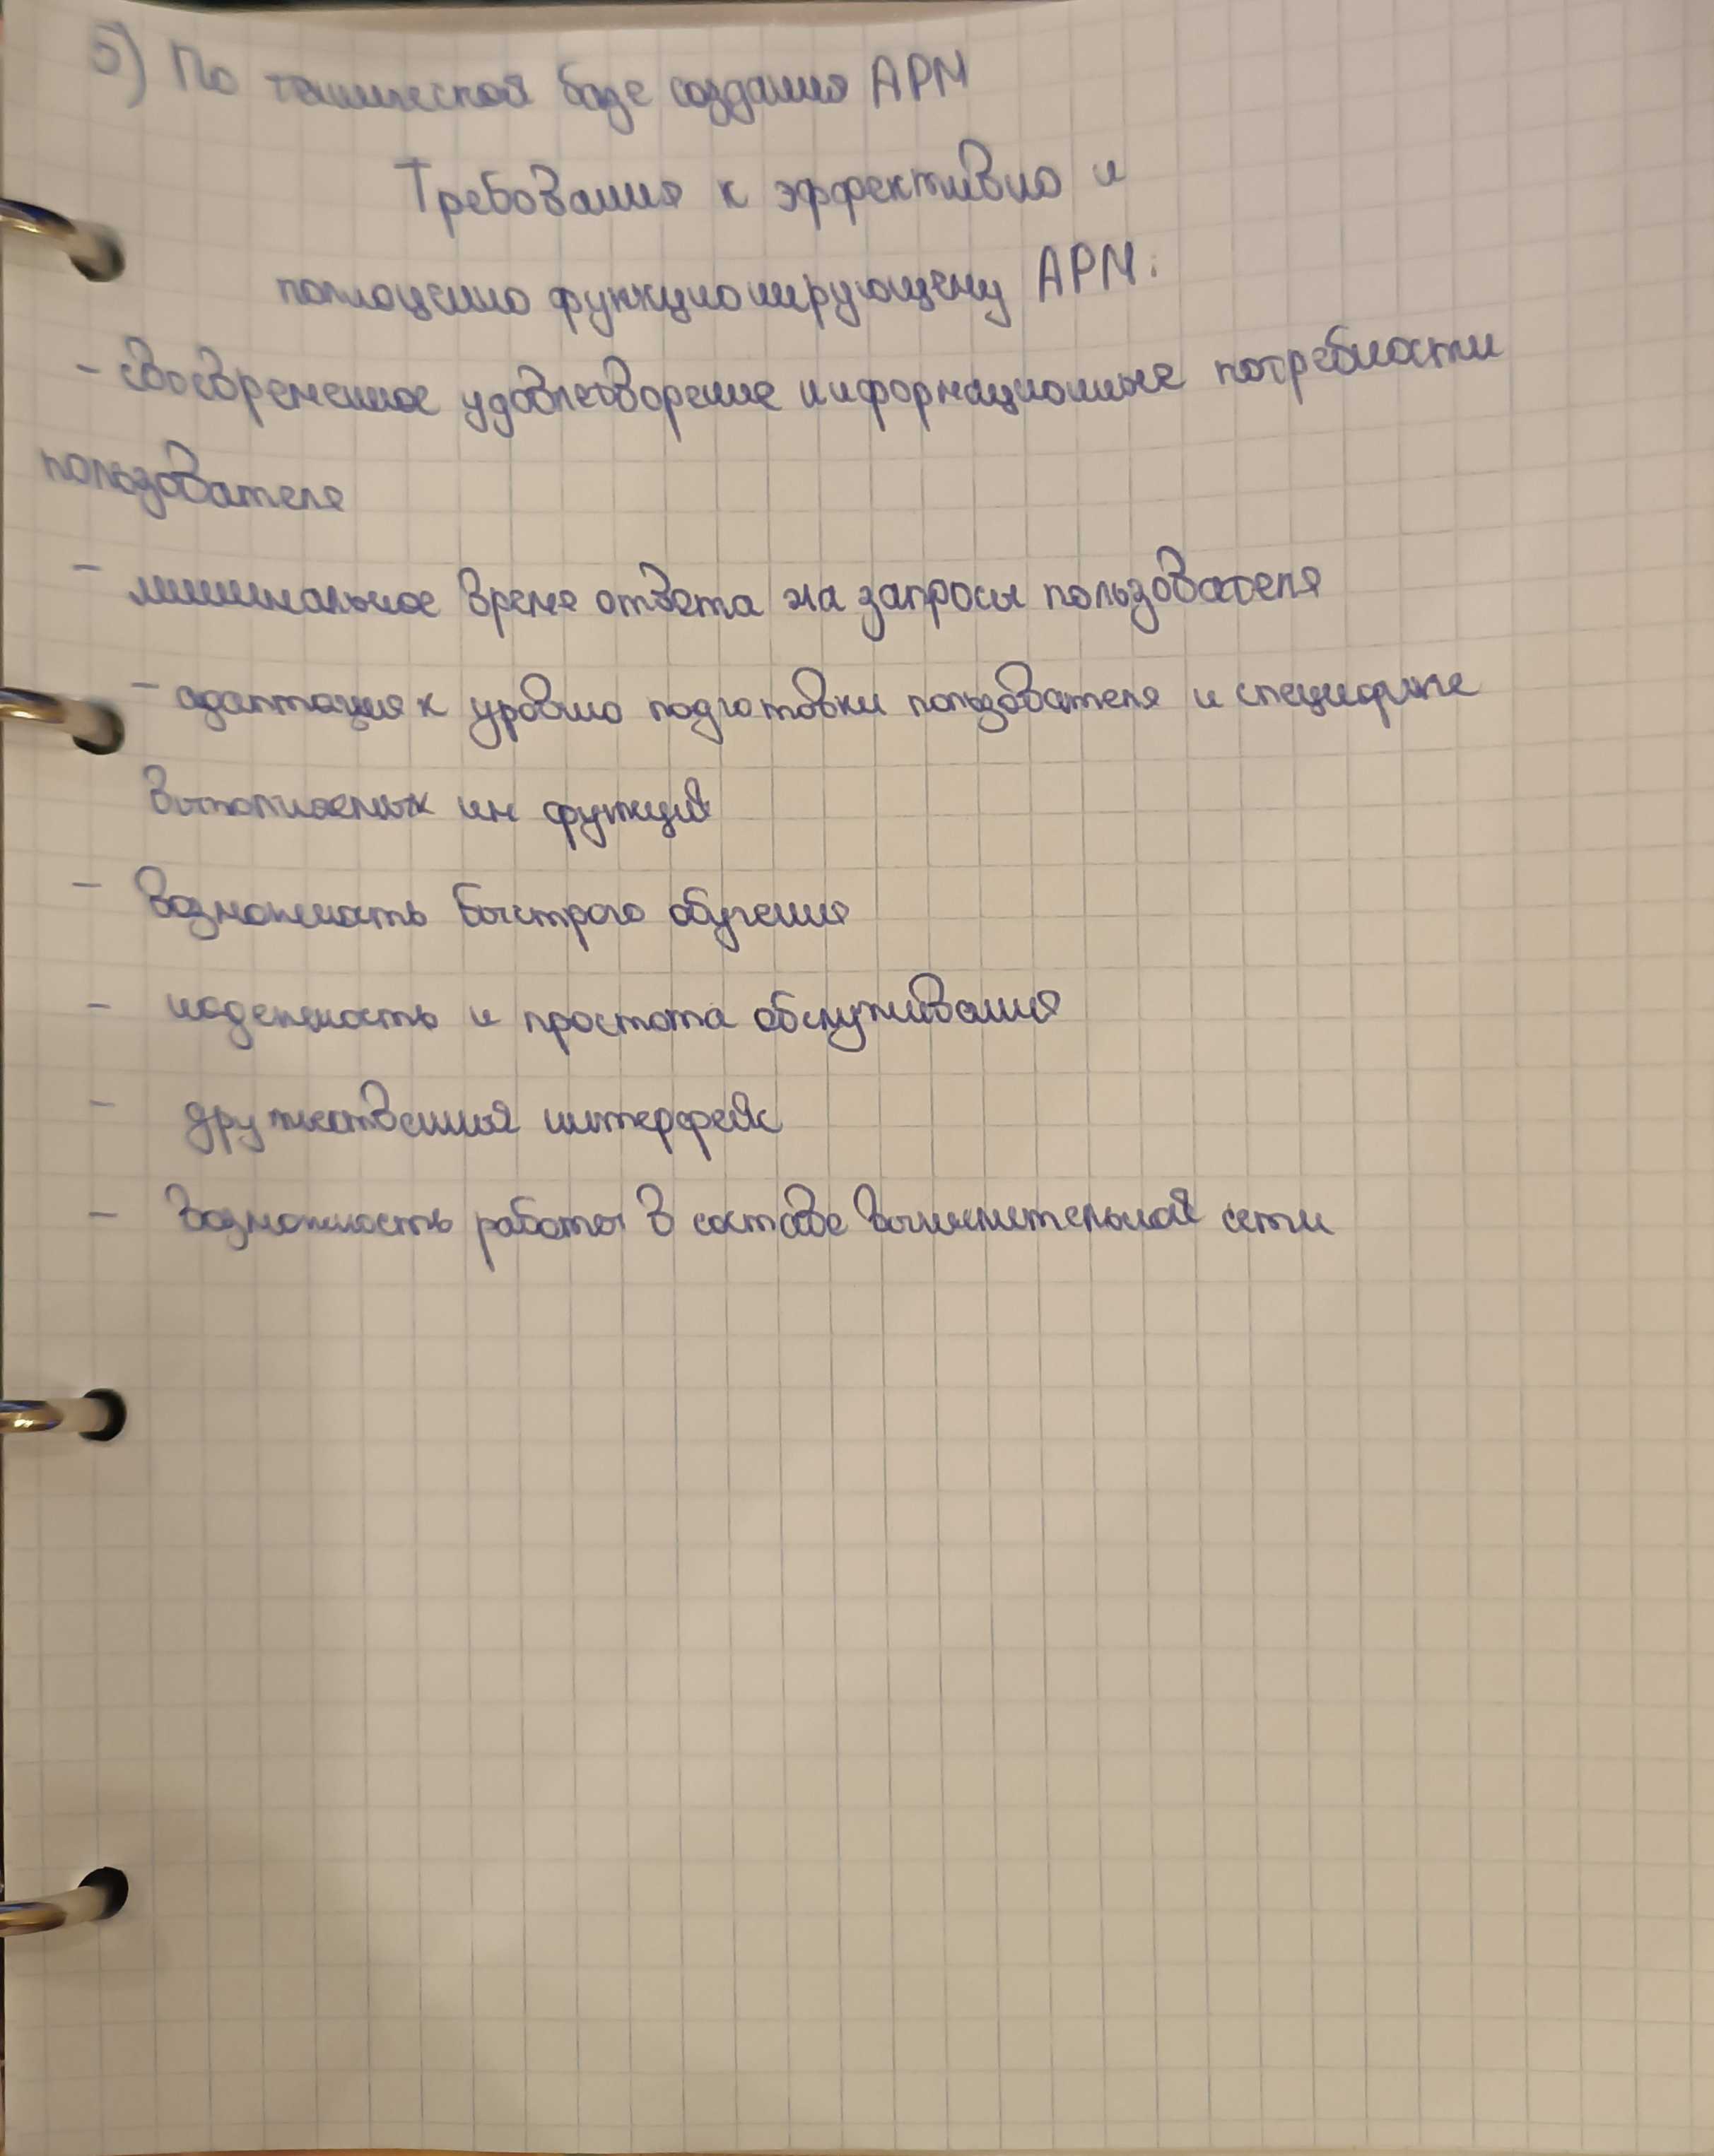 5) По технической базе создания АРМ
Требования к эффективно и
полноценно функционирующему АРМ:
- своевременное удовлетворение информационные потребности
пользователя
- минимальное время ответа на запросы пользователя
- адаптация к уровню подготовки пользователя и специфике
выполняемых им функций
- возможность быстрого обучения
- надежность и простота обслуживания
- дружественный интерфейс
- возможность работы в составе вычислительной сети